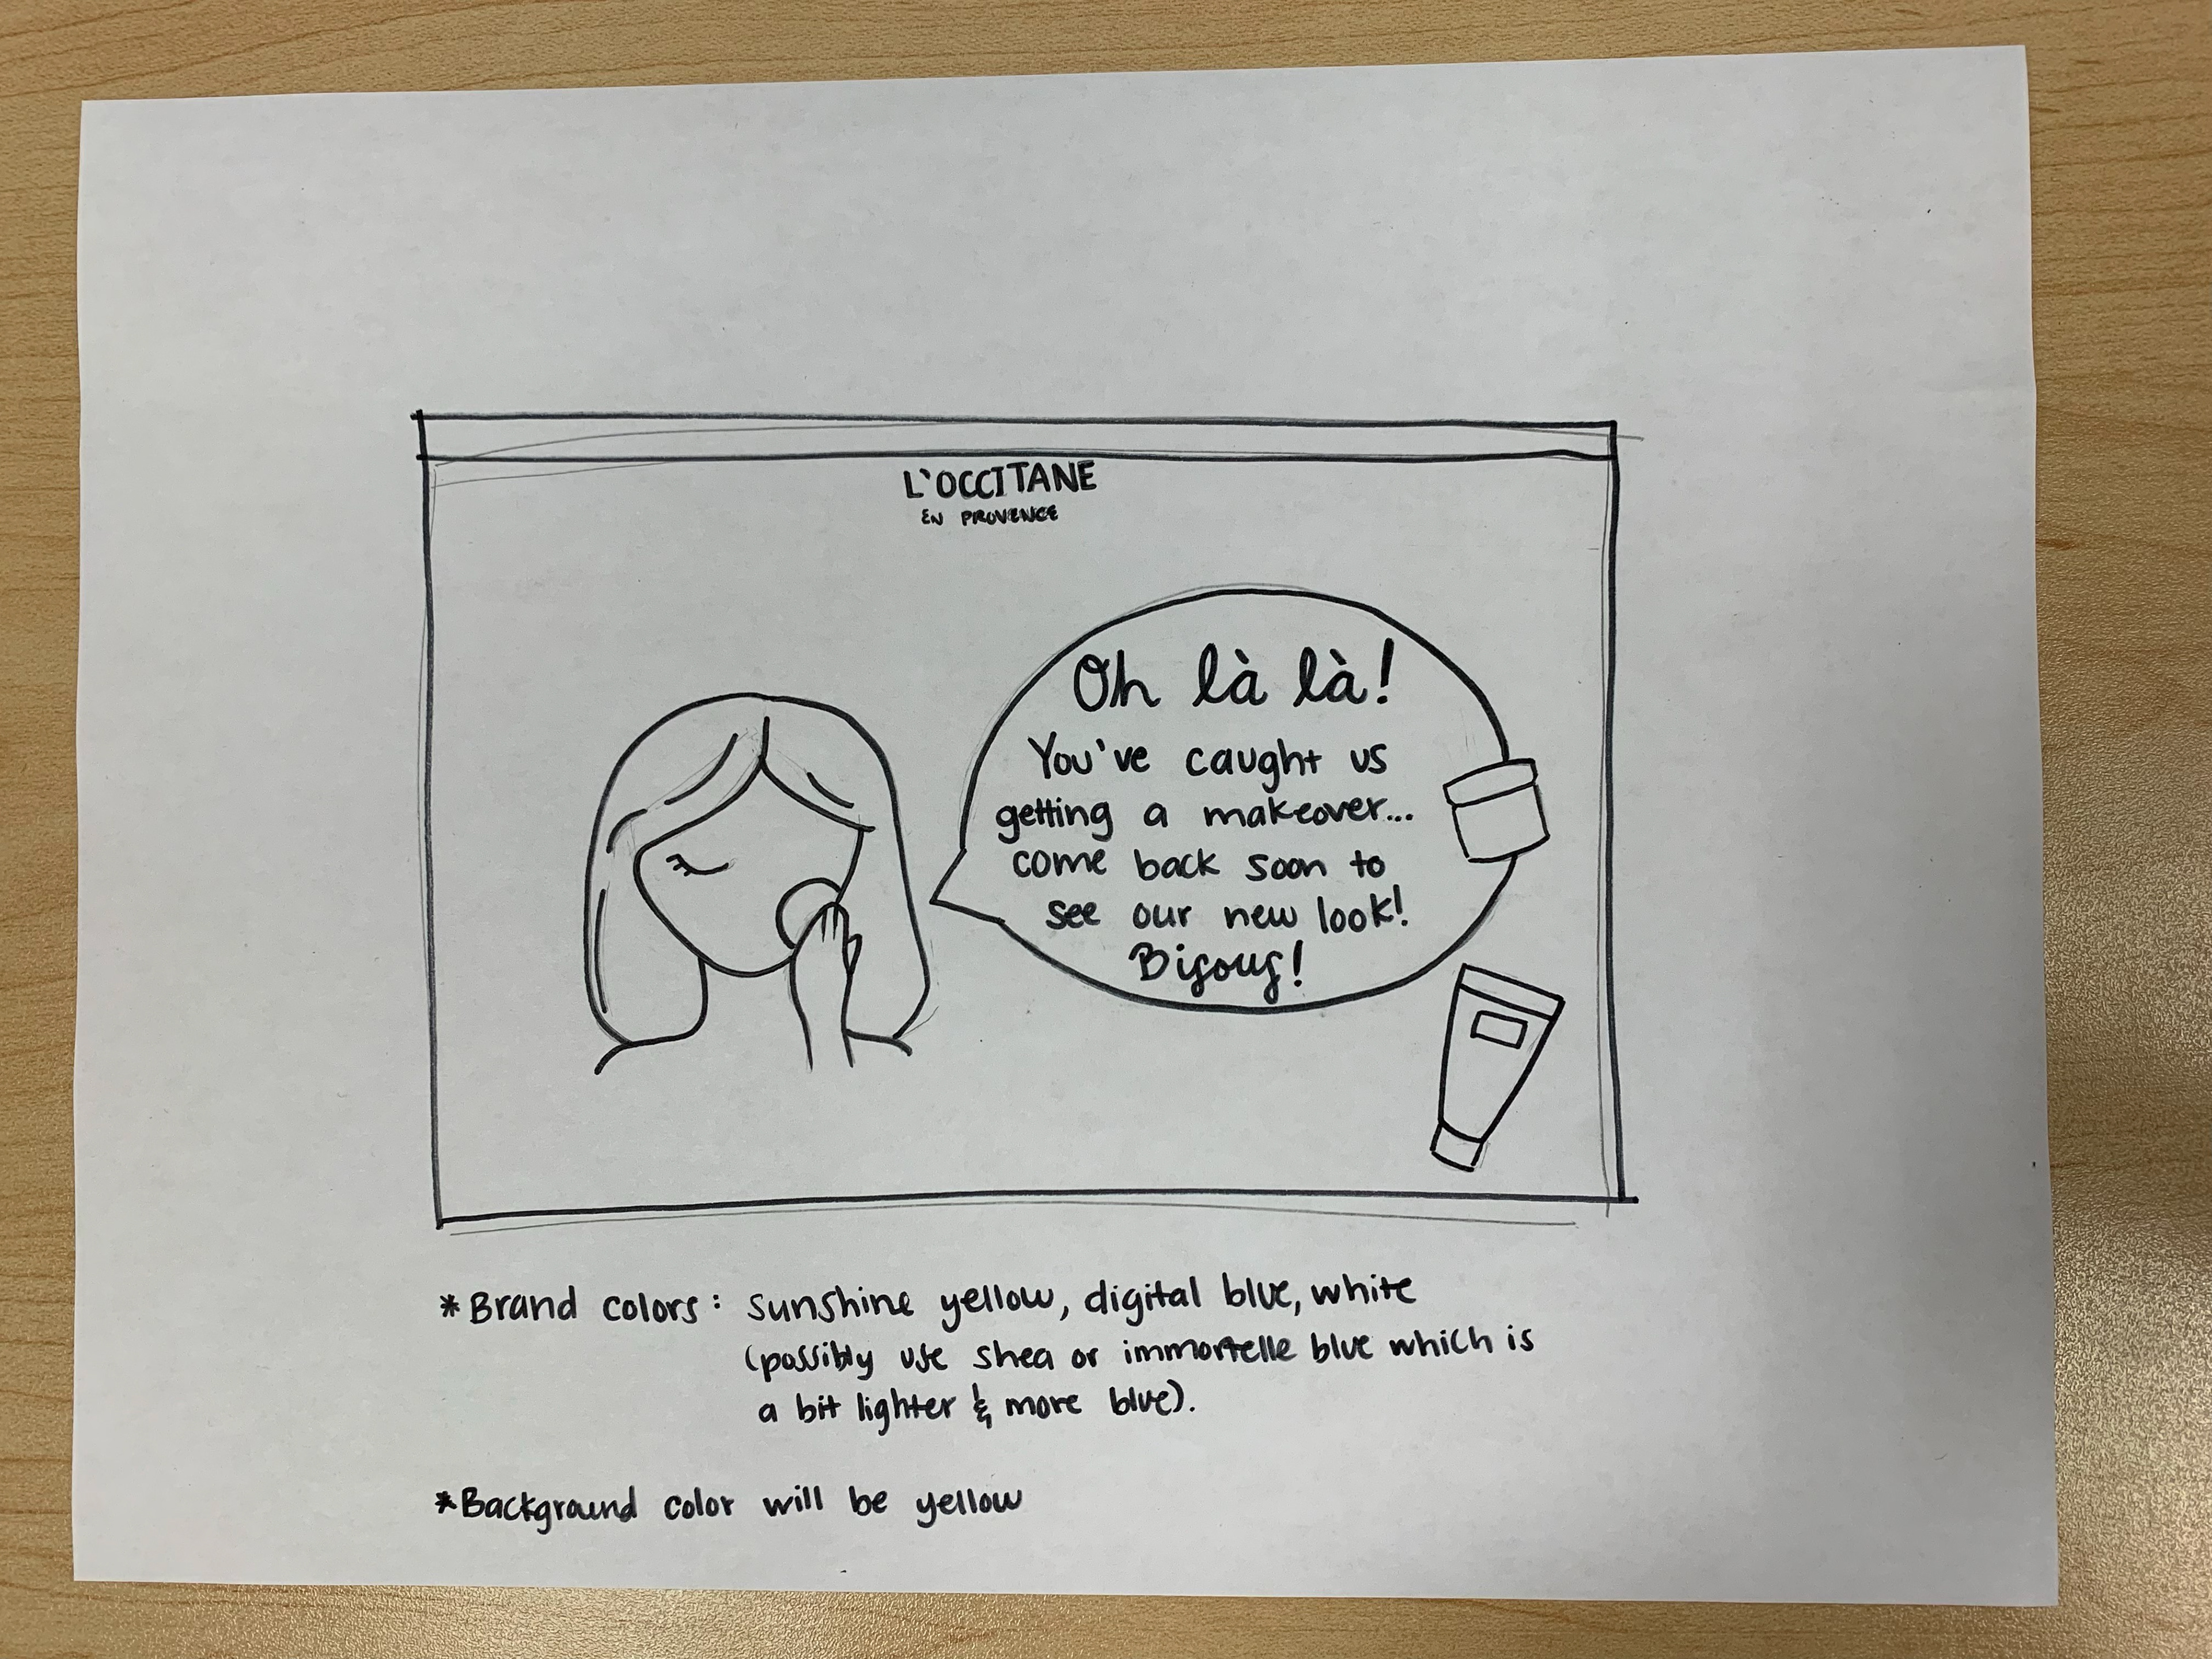 L'OCCITANE
EN PROVENCE
Oh là là!
You've caught us
getting a makeover...
come back soon to
see our new look!
Bisous!
*Brand colors: sunshine yellow, digital blue, white
(possibly use shea or immortelle blue which is
a bit lighter & more blue).
*Background color will be yellow